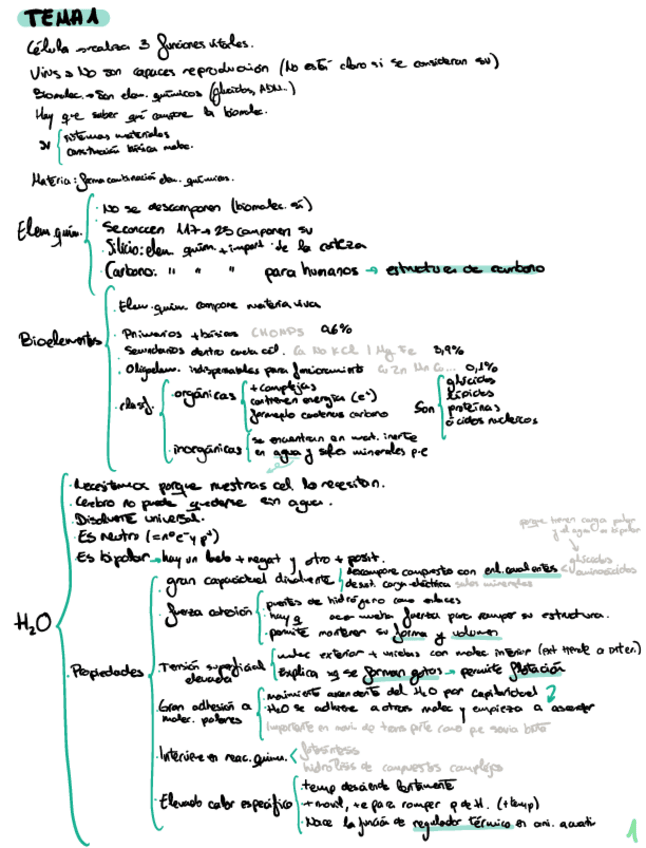 TEMA 1
Célula → realiza 3 funciones vitales.
Virus → No son capaces reproducción (No está claro si se consideran sv)
Biomolec. → Son elem. químicos (glúcidos, ADN..)
Hay que saber qué compone la biomolec.
sv
sistemas materiales
constitución básica molec.
Materia: forma combinación elem. químicos.
Elem quím.
. No se descomponen (biomolec. sí)
. Se conocen 117 → 25 componen sv
. Silicio: elem. quím. + import. de la corteza
. Carbono: " " " para humanos → estructura de carbono
Bioelementos
. Elem. quím. compone materia viva
. Primarios + básicos CHONPS 96%
. Secundarios dentro cada cél. Ca Na K Cl I Mg Fe 3,9%
. Oligoelem. indispensables para funcionamiento Cu Zn Mn Co... 0,1%
. clasif.
. orgánicas
+ complejas
contienen energía (e⁻)
formado cadenas carbono
Son
glúcidos
lípidos
proteínas
ácidos nucleicos
. inorgánicas
se encuentran en mat. inerte
en agua y sales minerales p.e
H₂O
. Necesitamos porque nuestras cel lo necesitan.
. Cerebro no puede quedarse sin agua.
. Disolvente universal.
. Es neutro (= nº e⁻ y p⁺)
. Es bipolar → hay un lado + negat y otro + posit.
porque tienen carga polar
y el agua es bipolar
. Propiedades
. gran capacidad disolvente
descompone compuesto con enl. covalentes
glúcidos
aminoácidos
desest. carga eléctrica sales minerales
. fuerza cohesión
puentes de hidrógeno como enlaces
hay q mucha fuerza para romper su estructura.
permite mantener su forma y volumen
. Tensión superficial
elevada
molec exterior + unidas con molec interior
Explica xq se forman gotas → permite flotación
. Gran adhesión a
molec. polares
movimiento ascendente del H₂O por capilaridad
H₂O se adhiere a otras molec y empieza a ascender
Importante en movi. de transporte como p.e savia bruta
. Interviene en reac. quím.
fotosíntesis
hidrólisis de compuestos complejos
. Elevado calor específico
. temp desciende lentamente
. + movil, + e para romper p de H. (+ temp)
. Hace la función de regulador térmico en ani. acuáti
1